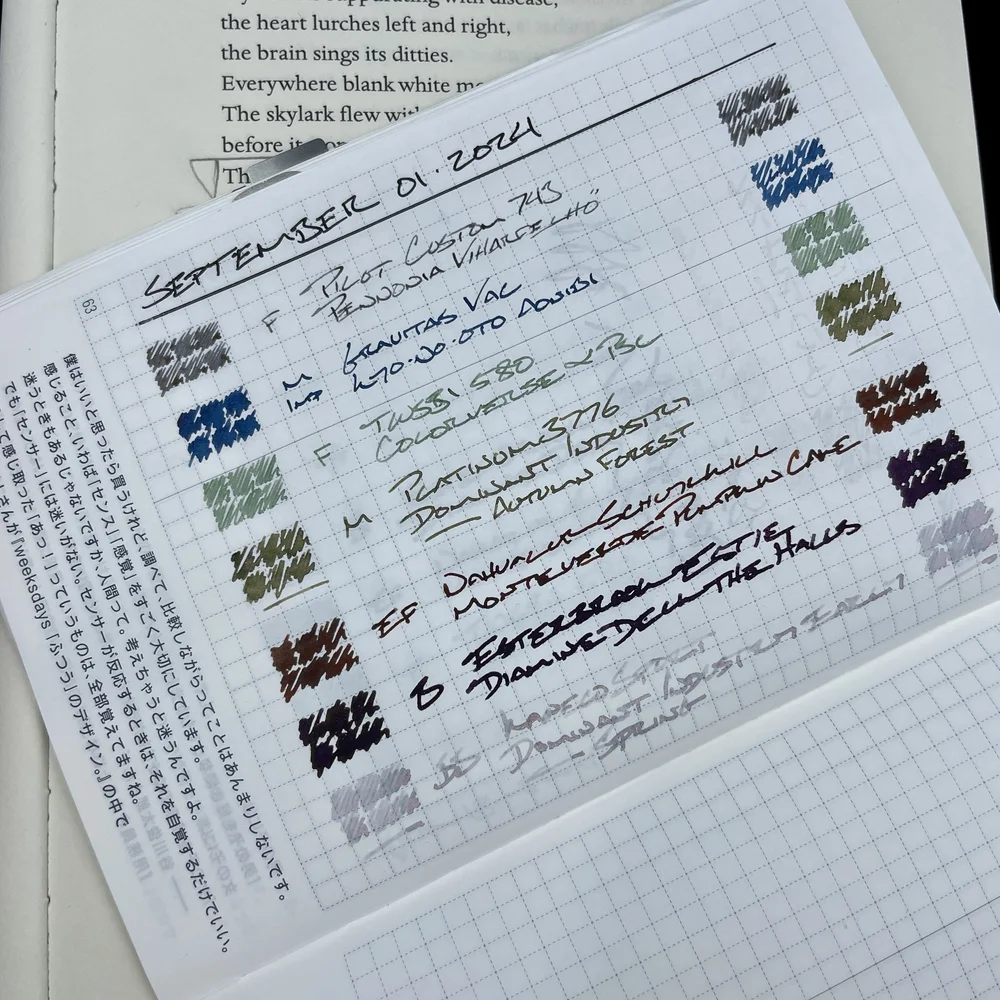 the heart lurches left and right,
the brain sings its ditties.
Everywhere blank white
The skylark flew
before
Th
SEPTEMBER 01.2024
F PILOT CUSTOM 743
PENNONIA VIHARFELHŐ
M GRAVITAS VAC
IMP
F TWSBI 580
COLORVERSE α BC
M PLATINUM 3776
DOMINANT INDUSTRY
— AUTUMN FOREST
EF NAHVALUR SCHUYLKILL
MONTEVERDE PUMPKIN CAKE
B ESTERBROOK ESTIE
DIAMINE DECK THE HALLS
BB KAWECO SPORT
DOMINANT INDUSTRY EARLY
— SPRING
63
僕はいいと思ったら買うけれど、調べて、比較しながらってことはあんまりしないです。
感じること、いわば「センス」「感覚」をすごく大切にしています。
迷うときもあるじゃないですか、人間って。考えちゃうと迷うんですよ。
でも「センサー」には迷いがない。センサーが反応するときは、それを自覚するだけでいい。
して感じ取った「あっ！」っていうものは、全部覚えてますね。
さんが『weeksdays「ふつう」のデザイン。』の中で